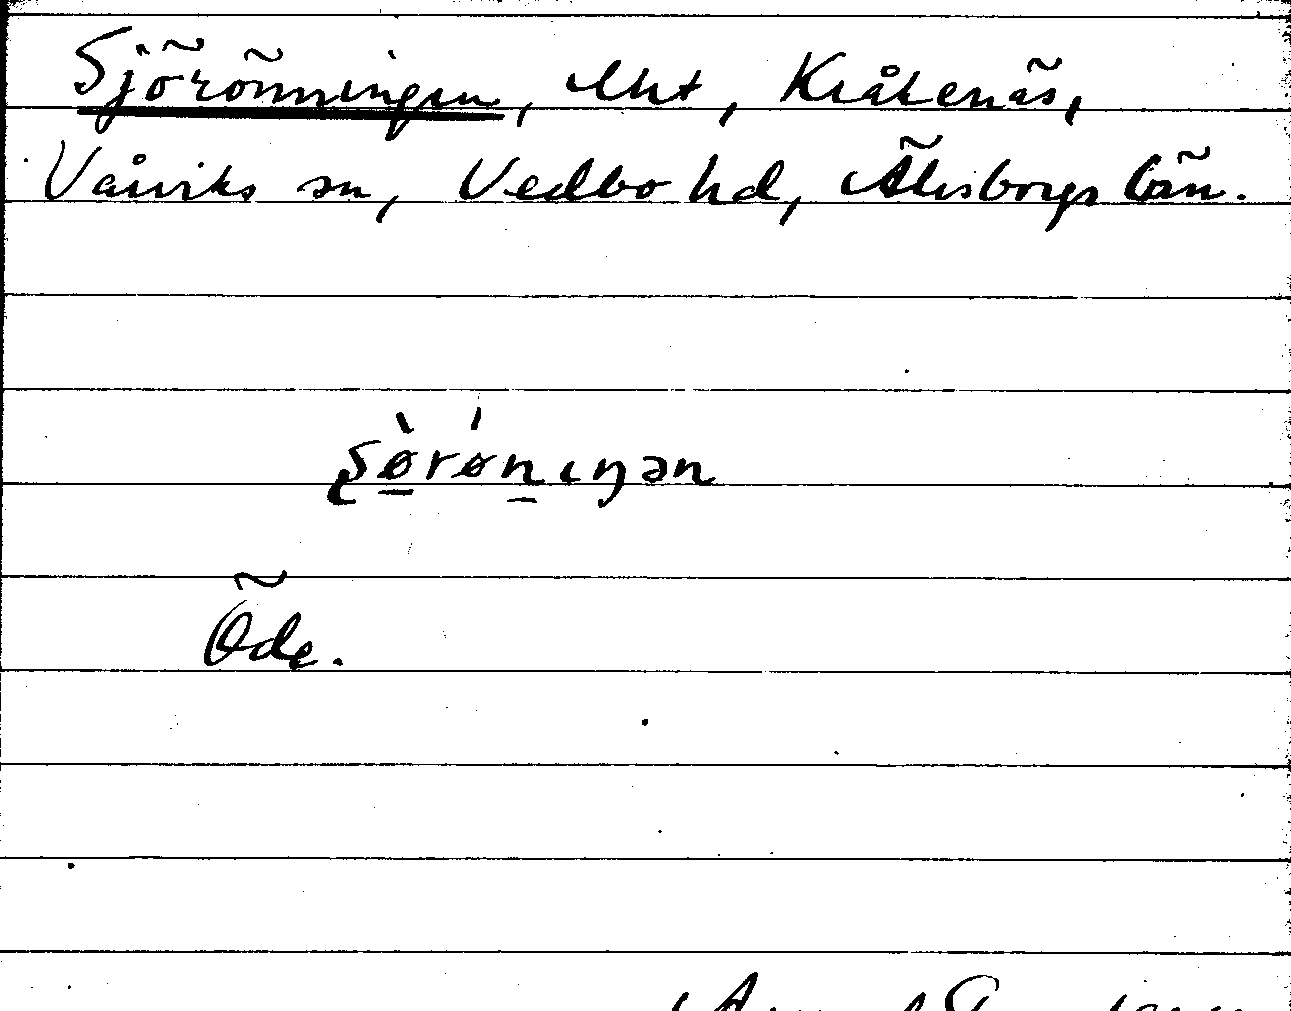 Sjörönningen, lht, Kråkenäs,
Vårviks sn, Vedbo hd, Älvsborgs län.
Söröniŋən
Öde.